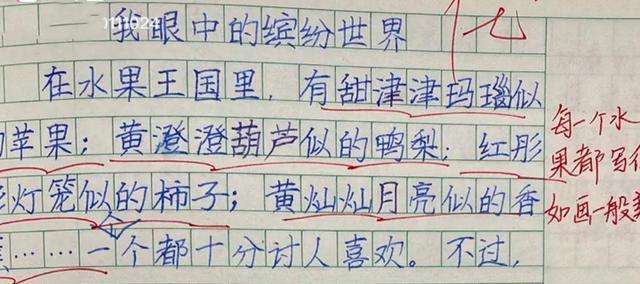 我眼中的缤纷世界
在水果王国里，有甜津津玛瑙似
的苹果；黄澄澄葫芦似的鸭梨；红彤
灯笼似的柿子；黄灿灿月亮似的香
……一个个都十分讨人喜欢。不过，
每一个水
果都写得
如画一般美